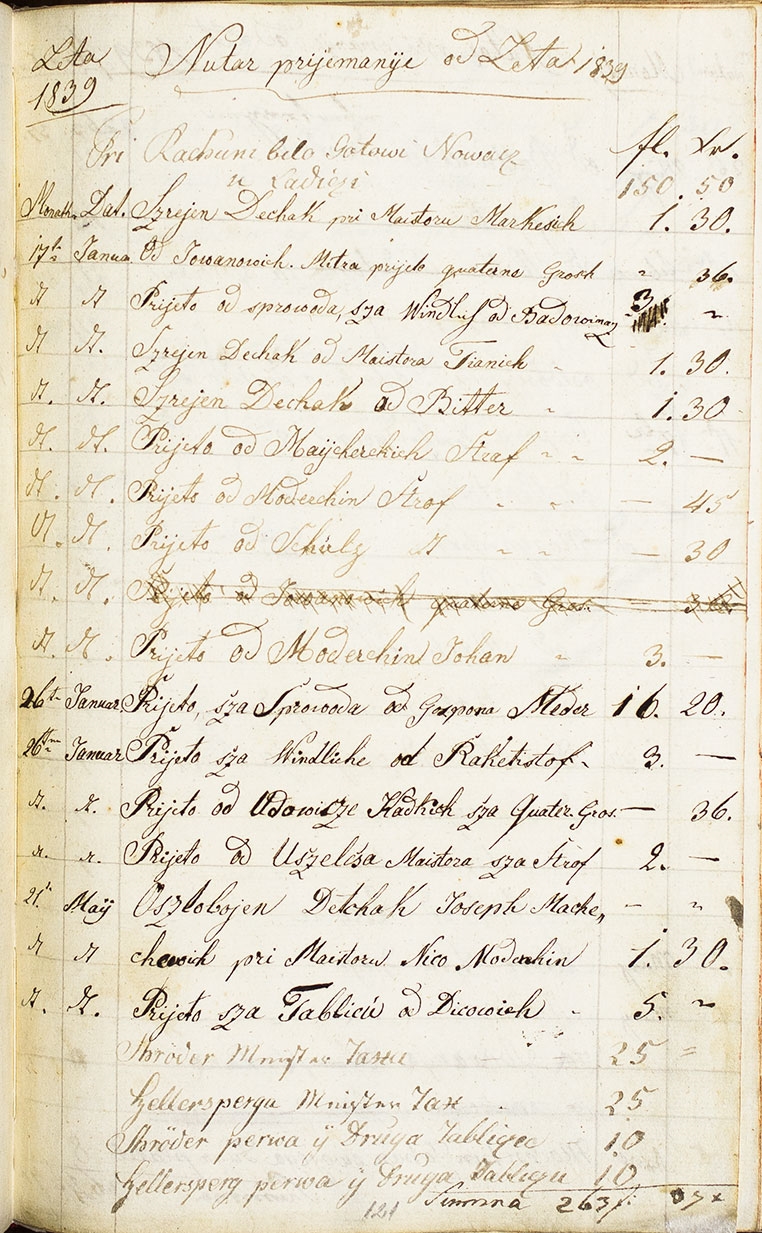 Leta Nutar prijemanije od Leta 1839
1839
fl. xr.
Pri Rachuni bilo Gotowi Nowacz
u Ladiczi 150. 50
Monath. Dat. Szrejen Dechak pri Maistoru Markesich 1. 30.
17ten Janua. Od Jowanowich. Mitra prijeto quaterne Grosh " 36.
dt dt Prijeto od sprowoda, sza Windlis od Badowinacz 3. "
dt dt. Szrejen Dechak od Maistora Franich - 1. 30.
dt. dt. Szrejen Dechak od Bitter - 1. 30
dt. dt. Prijeto od Maÿcherchich Straf " " 2. —
dt. dt. Prijeto od Moderchin Strof - - — 45
dt. dt. Prijeto od Schulz dt - - — 30
dt. dt. Prijeto od Jowanowich quaterne Gros. — 36.
dt. dt. Prijeto od Moderchin Johan - 3. —
26ten Januar Prijeto, sza Sprowoda od Gospona Meder 16. 20.
26ten Januar Prijeto sza Windliche od Raketistof - 3. —
dt. dt. Prijeto od Udowicze Kadkich sza Quater. Gros. — 36.
dt. dt. Prijeto od Uszelcsa Maistora sza Strof 2. —
21t Maÿ Oszlobojen Detchak Joseph Mache„ — "
dt dt chewich pri Maistoru Nico Moderchin 1. 30.
dt. dt. Prijeto sza Tablicú od Dicowich - 5. "
Shröder Meister Taxu 25 =
Hellerspergu Meister Tax . 25
Shröder perwa ÿ Druga Tabliczu - 10
Hellersperg perwa ÿ Druga Tabliczu 10
121 Summa 263 f: 57 x